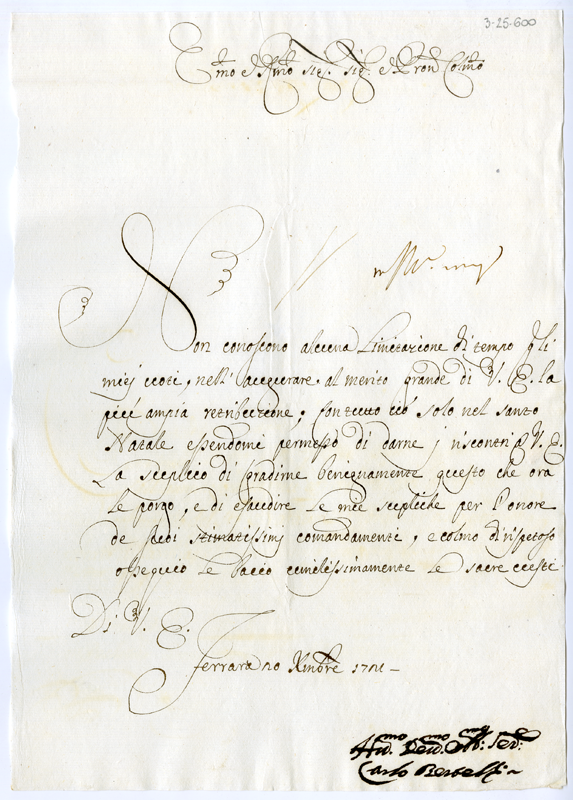 3-25-600
E.mo e R.mo Sig. Sig. e Pron Col.mo
Non conoscono alcuna Limitazione di tempo gli
miei uoti, nell' augurare al merito grande di V. E. la
più ampia retribuzione; con tutto ciò solo nel santo
Natale essendomi permesso di darne i riscontri a V. E.
La supplico di gradirne benignamente questo che ora
le porgo, e di esaudire le mie suppliche per l'onore
de suoi stimatissimi comandamenti, e colmo di rispetoso
ossequio le bacio umilissimamente le sacre uesti.
Di V. E.
Ferrara 20 Xmbre 1721
Carlo